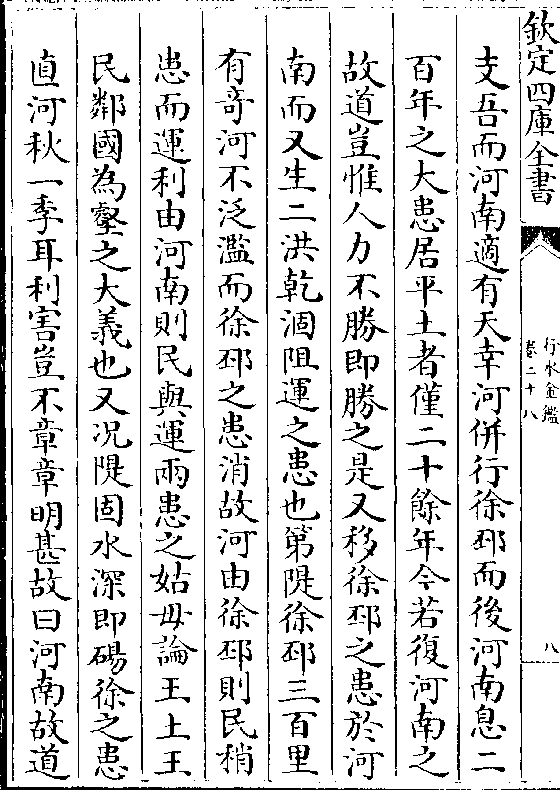 欽定四庫全書
行水金鑑
卷二十八
八
支吾而河南適有天幸河併行徐邳而後河南息二
百年之大患居平土者僅二十餘年今若復河南之
故道豈惟人力不勝即勝之是又移徐邳之患於河
南而又生二洪乾涸阻運之患也第隄徐邳三百里
有竒河不泛濫而徐邳之患消故河由徐邳則民稍
患而運利由河南則民與運兩患之姑毋論王土王
民鄰國為壑之大義也又况隄固水深即碭徐之患
直河秋一季耳利害豈不章章明甚故曰河南故道